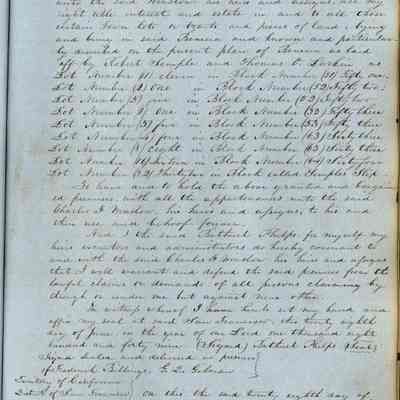 unto the said Winslow his heirs and assigns, all my
right title interest and estate in and to all those
certain Town lots or tracts and piece of land lying
and being in said Benicia and known and particular
ly denoted on the present plan of Benicia as laid
off by Robert Semple and Thomas O. Larkin as
Lot Number (11) eleven in Block Number (51) Fifty one
Lot Number (1) One in Block Number (52) Fifty two
Lot Number in Block Number (52) Fifty two
Lot Number One in Block Number (53) Fifty three
Lot Number in Block Number (53) Fifty three
Lot Number four in Block Number (63) Sixty three
Lot Number (8) eight in Block Number (63) Sixty three
Lot Number (16) Sixteen in Block Number (64) Sixty four
Lot Number (32) Thirty two in Block called Semples Slip
To have and to hold the above granted and bargain
ed premises, with all the appurtenances unto the said
Charles F. Winslow, his heirs and assigns, to his and
their use and behoof forever
And I the said Bethuel Phelps for myself my
heirs executors and administrators do hereby covenant to
and with the said Charles F. Winslow his heirs and assigns
that I will warrant and defend the said premises from the
lawful claims or demands of all persons claiming by
through or under me but against none other
In witness whereof I have hereto set my hand and
affix my seal at said San Francisco, this twenty eighth
day of June in the year of our Lord one thousand eight
hundred and forty nine (Signed) Bethuel Phelps (Seal)
Signed Sealed and delivered in presence
of Frederick Billings,
Territory of California
District of San Francisco On this the said twenty eighth day of